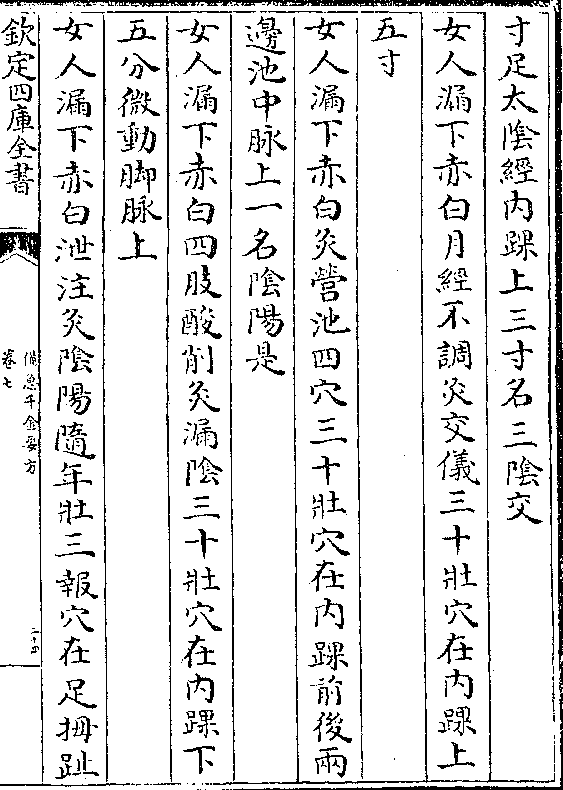 寸足太陰經内踝上三寸名三陰交
女人漏下赤白月經不調灸交儀三十壯穴在内踝上
五寸
女人漏下赤白灸營池四穴三十壯穴在内踝前後兩
邊池中脉上一名陰陽是
女人漏下赤白四肢酸削灸漏陰三十壯穴在内踝下
五分微動脚脉上
女人漏下赤白泄注灸陰陽隨年壯三報穴在足拇趾
欽定四庫全書
備急千金要方
卷七